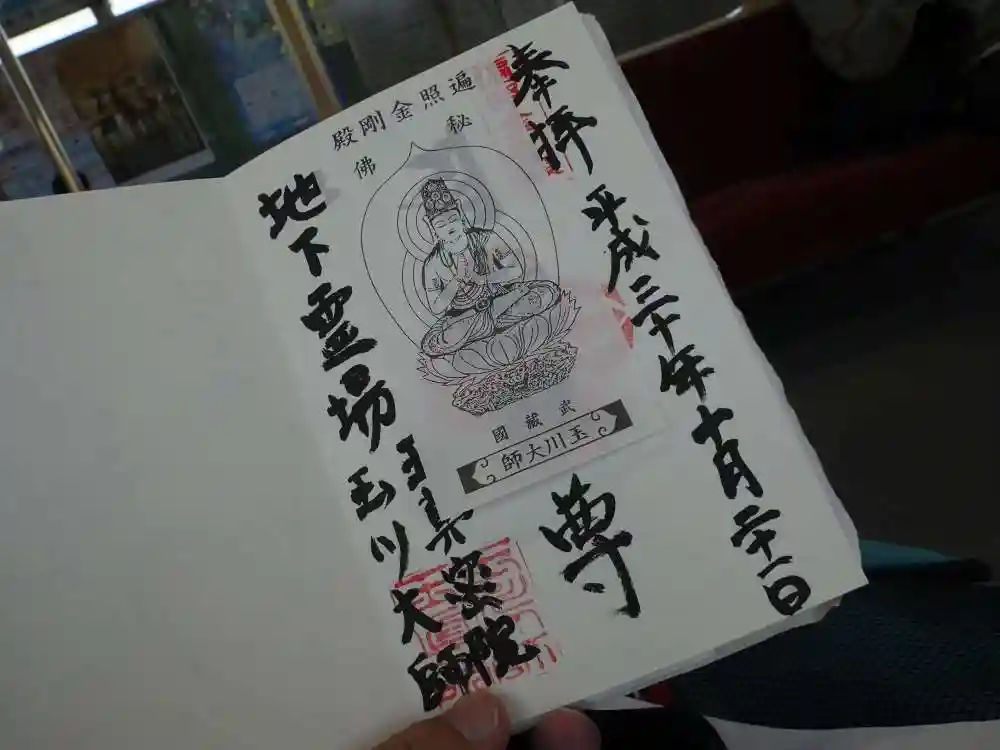 奉拝
平成三十年十月二十一日
遍照金剛殿
秘佛
武蔵國
玉川大師
尊
玉真密院
地下霊場 玉川大師